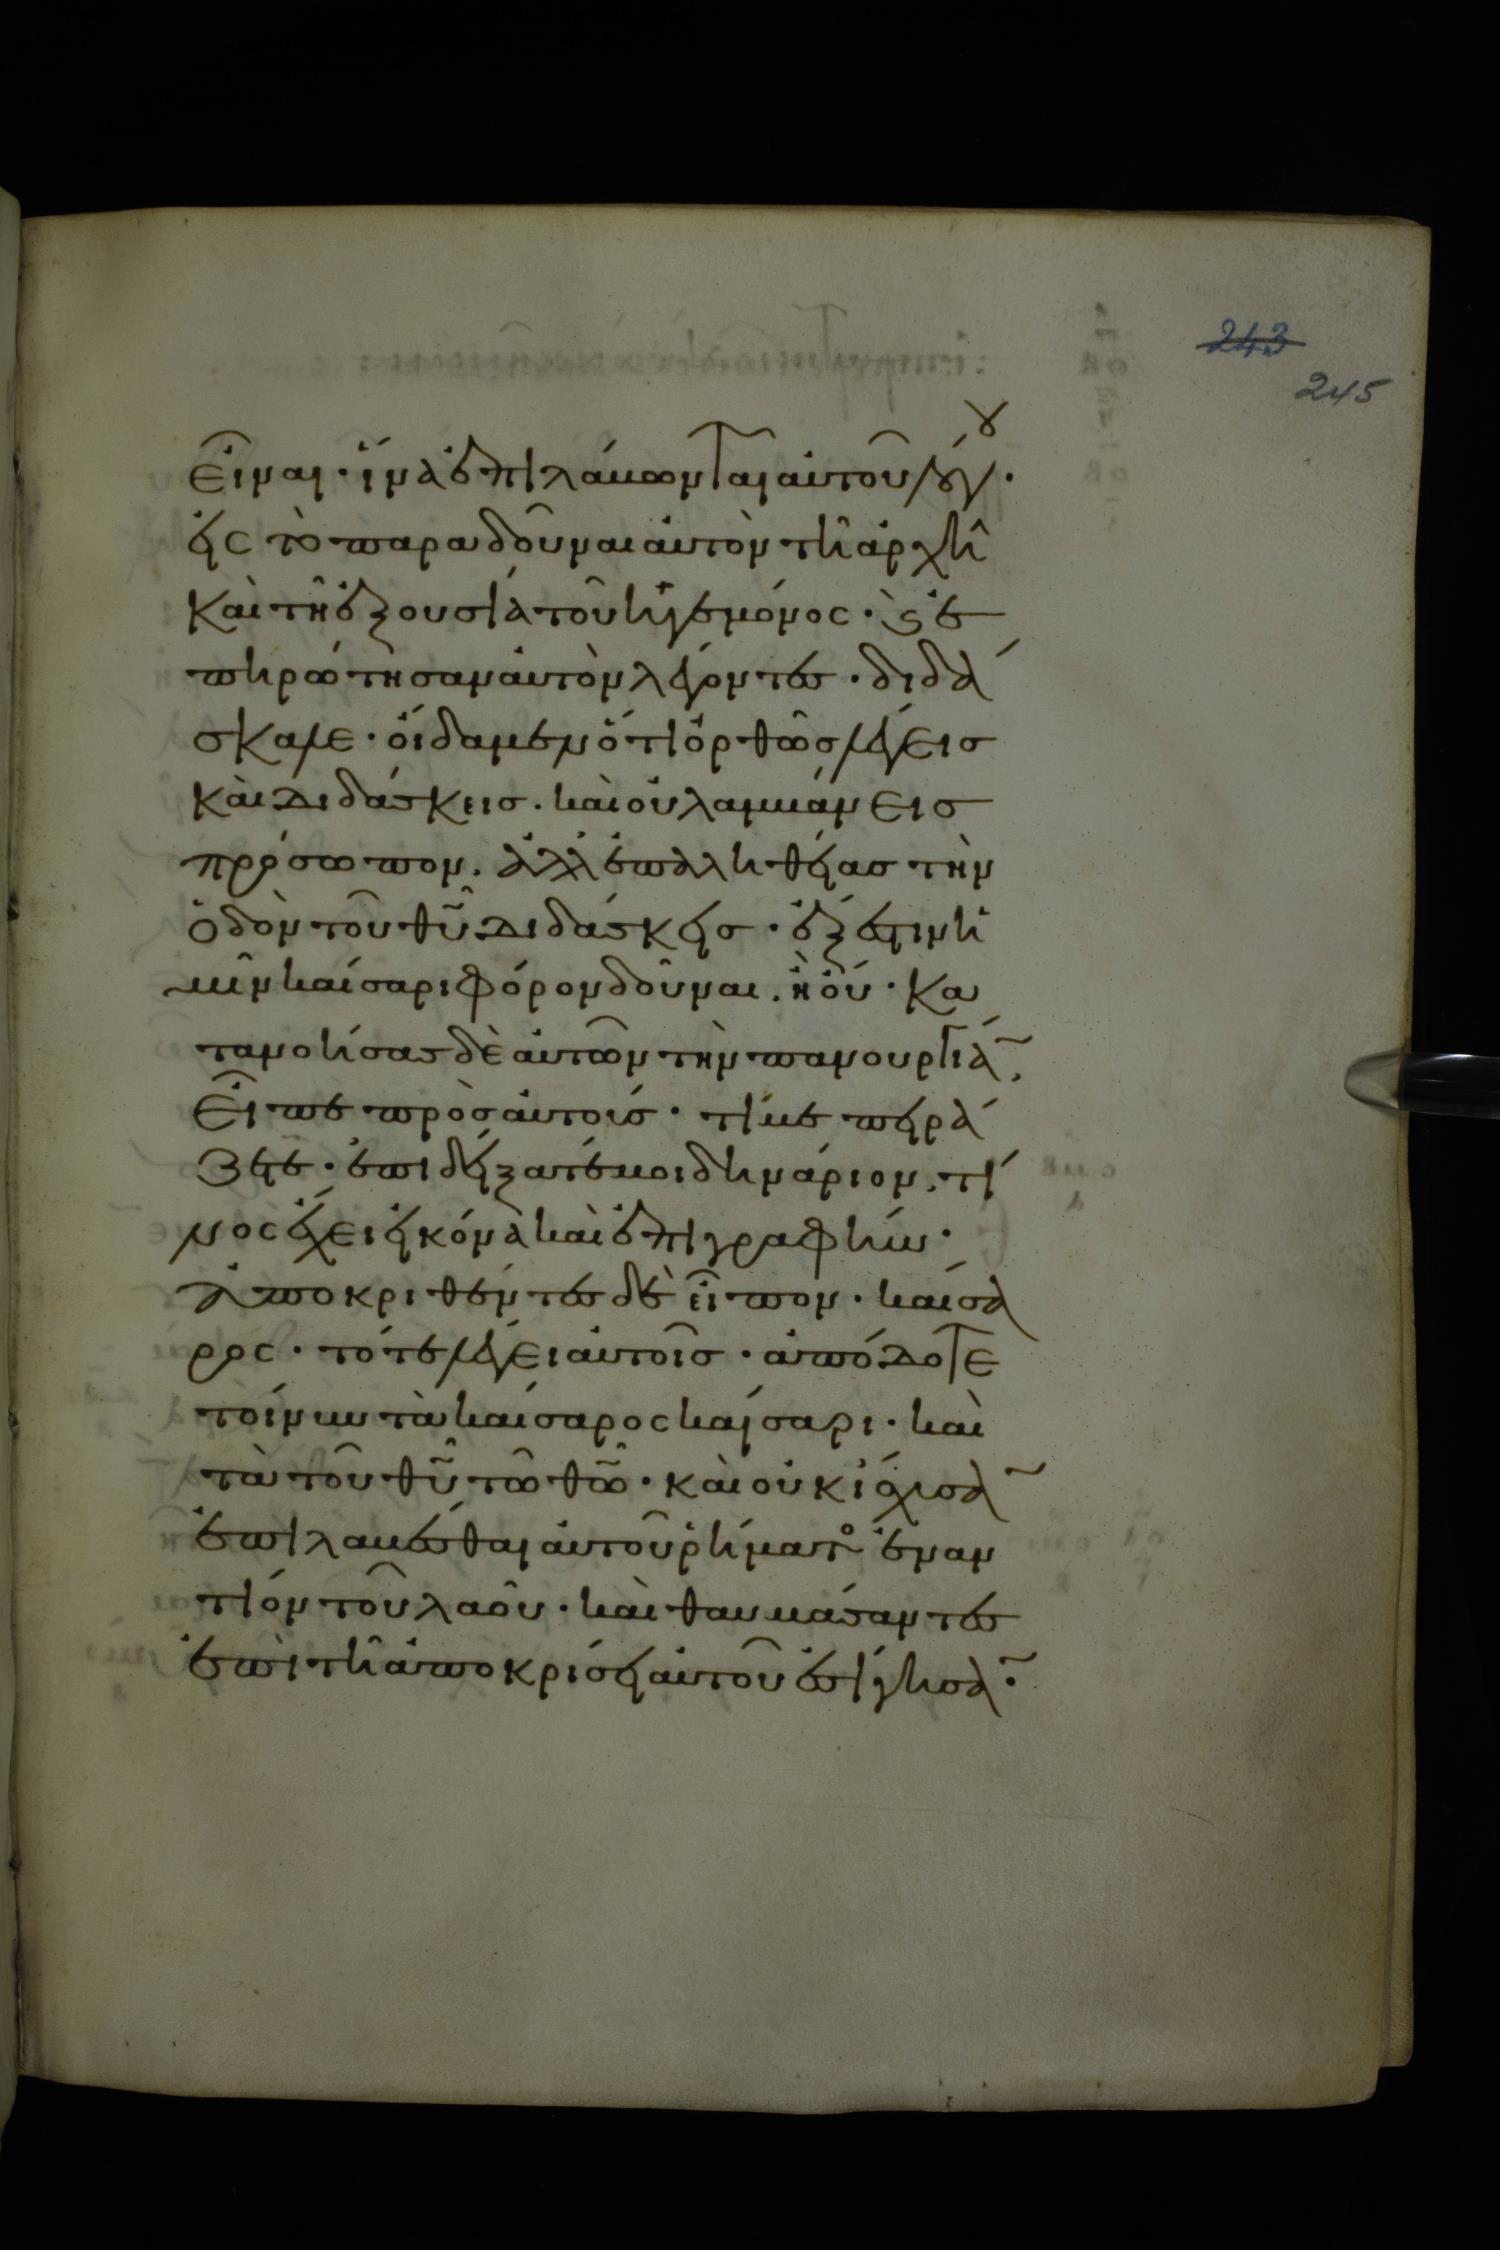 243
245
εἶναι· ἵνα ἐπιλάβωνται αὐτοῦ λόγου·
εἰς τὸ παραδοῦναι αὐτὸν τῆ ἀρχῆ
καὶ τῆ ἐξουσία τοῦ ἡγεμόνος· καὶ ἐ
πηρώτησαν αὐτὸν λέγοντες· διδά
σκαλε· οἴδαμεν ὅτι ὀρθῶς λέγεις
καὶ διδάσκεις. καὶ οὐ λαμβάνεις
πρόσωπον. ἀλλ ἐπ αληθείας τὴν
ὁδὸν τοῦ θῦ διδάσκεις· ἔξεστιν ἡ
μῖν καίσαρι φόρον δοῦναι. ἢ οὔ· κα
τανοήσας δὲ αὐτῶν τὴν πανουργίαν.
εἶπε πρὸς αὐτούς· τί με πειρά
ζετε· ἐπιδείξατέ μοι δηνάριον. τί
νος ἔχει εἰκόνα καὶ ἐπιγραφήν·
ἀποκριθέντες δὲ εἶπον· καίσα
ρος· τότε λέγει αὐτοῖς· ἀπόδοτε
τοίνυν τὰ καίσαρος καίσαρι· καὶ
τὰ τοῦ θῦ τῶ θῶ· καὶ οὐκ ἴσχυσαν
ἐπιλαβέσθαι αὐτοῦ ῥήματος ἐναν
τίον τοῦ λαοῦ· καὶ θαυμάσαντες
ἐπὶ τῆ ἀποκρίσει αὐτοῦ ἐσίγησαν·